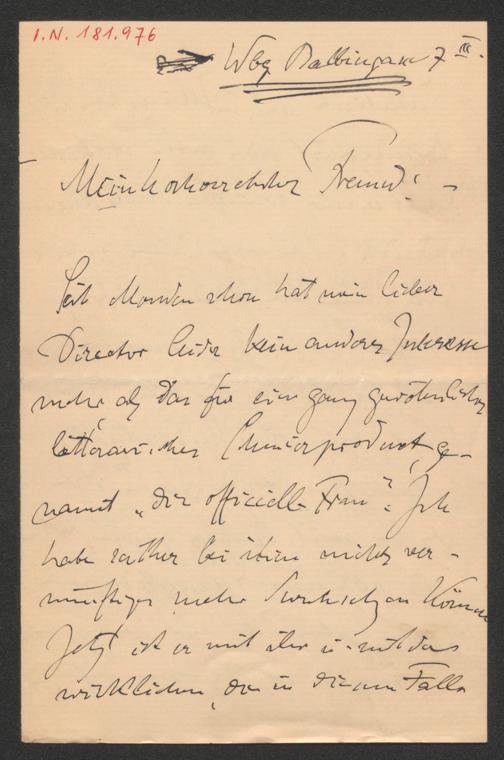 I.N. 181.976
Wbg 7 III.
Mein hochverehrter Freund! –
Seit Monden schon hat mein lieber
Director leider kein anderes Interesse
mehr als das für ein ganz gewöhnliches
litterarisches ge-
nannt "die officielle Frau". Ich
habe seither bei ihm nichts ver-
nünftiges mehr durchsetzen können
Jetzt ist er mit u. mit der
wirklichen, die in diesem Falle